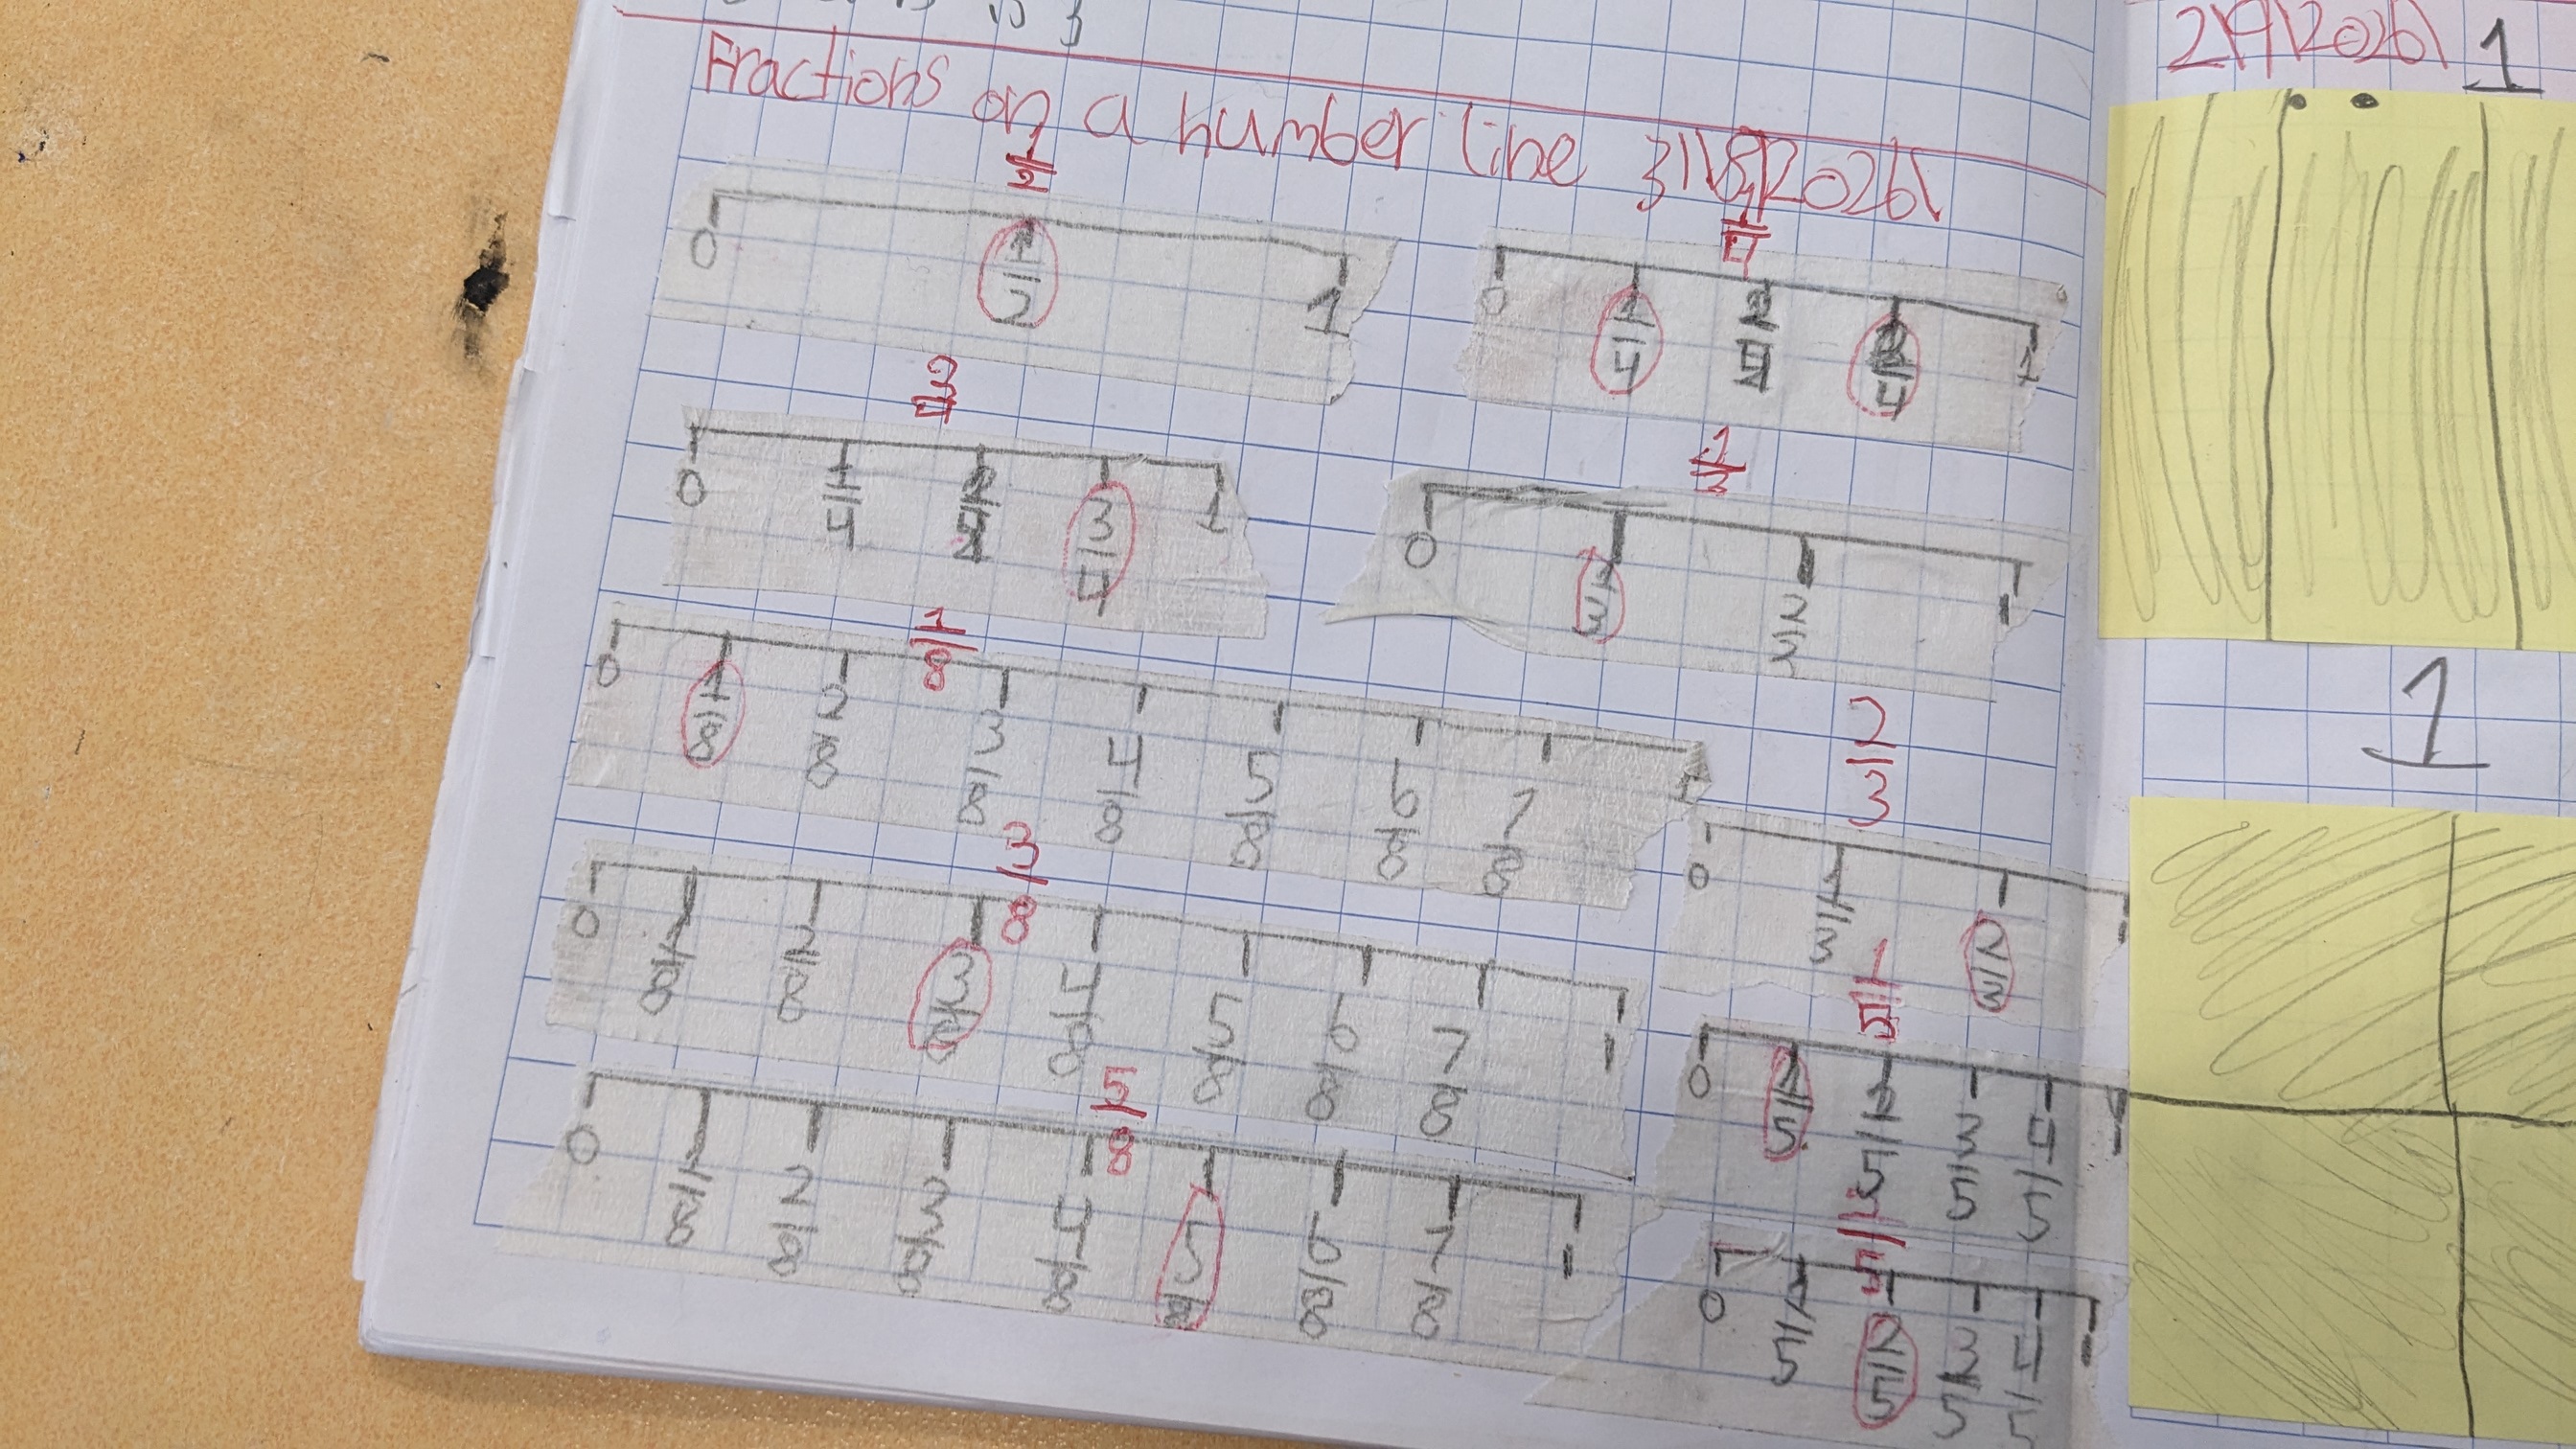 Fractions on a number line 31\8\2026\
1/2
0 1/2 1
1/4
0 1/4 2/4 3/4 1
3/4
0 1/4 2/4 3/4 1
1/3
0 1/3 2/3 1
1/8
0 1/8 2/8 3/8 4/8 5/8 6/8 7/8 1
2/3
0 1/3 2/3 1
3/8
0 1/8 2/8 3/8 4/8 5/8 6/8 7/8 1
1/5
0 1/5 2/5 3/5 4/5 1
5/8
0 1/8 2/8 3/8 4/8 5/8 6/8 7/8 1
0 1/5 2/5 3/5 4/5 1
2\9\2026\ 1
1